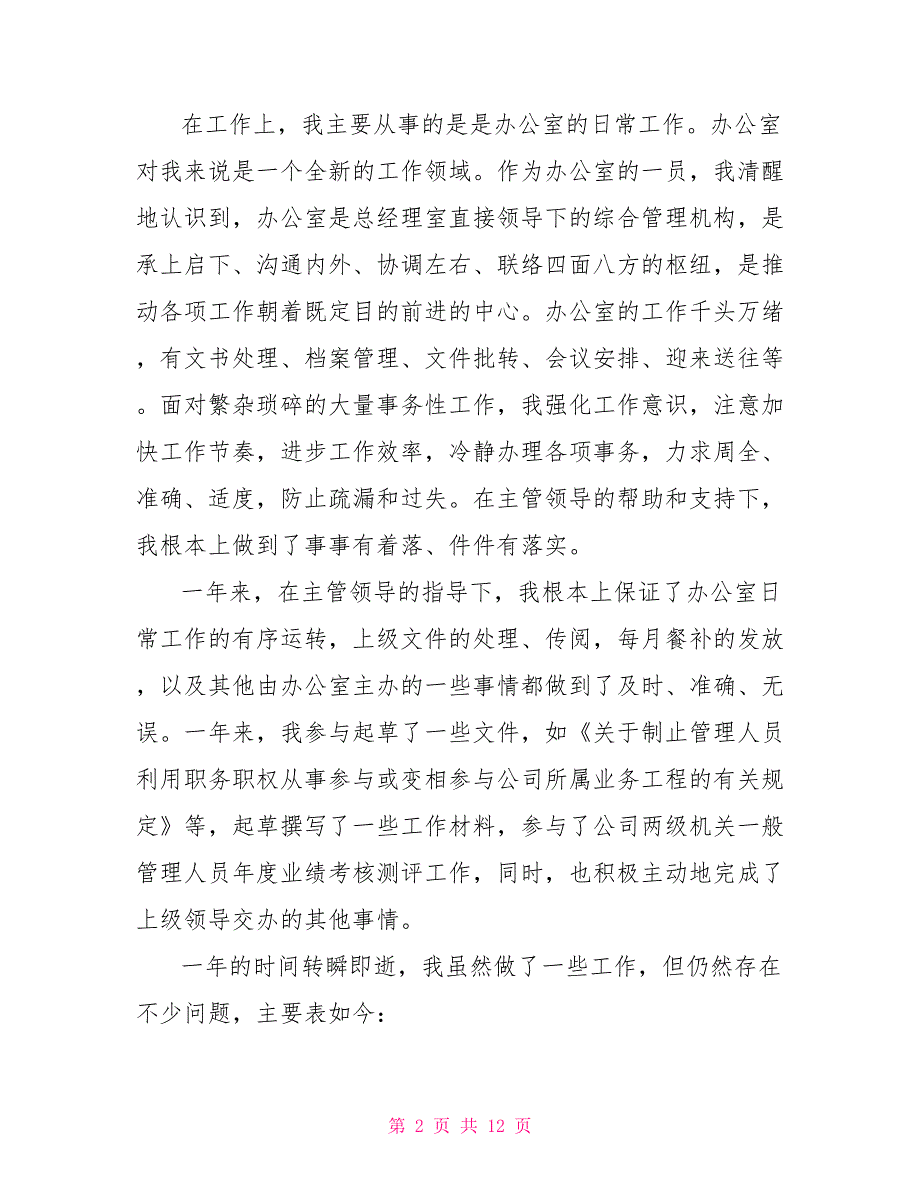 在工作上，我主要从事的是是办公室的日常工作。办公室
对我来说是一个全新的工作领域。作为办公室的一员，我清醒
地认识到，办公室是总经理室直接领导下的综合管理机构，是
承上启下、沟通内外、协调左右、联络四面八方的枢纽，是推
动各项工作朝着既定目的前进的中心。办公室的工作千头万绪
，有文书处理、档案管理、文件批转、会议安排、迎来送往等
。面对繁杂琐碎的大量事务性工作，我强化工作意识，注意加
快工作节奏，进步工作效率，冷静办理各项事务，力求周全、
准确、适度，防止疏漏和过失。在主管领导的帮助和支持下，
我根本上做到了事事有着落、件件有落实。
一年来，在主管领导的指导下，我根本上保证了办公室日
常工作的有序运转，上级文件的处理、传阅，每月餐补的发放
，以及其他由办公室主办的一些事情都做到了及时、准确、无
误。一年来，我参与起草了一些文件，如《关于制止管理人员
利用职务职权从事参与或变相参与公司所属业务工程的有关规
定》等，起草撰写了一些工作材料，参与了公司两级机关一般
管理人员年度业绩考核测评工作，同时，也积极主动地完成了
上级领导交办的其他事情。
一年的时间转瞬即逝，我虽然做了一些工作，但仍然存在
不少问题，主要表如今：
第 2 页 共 12 页